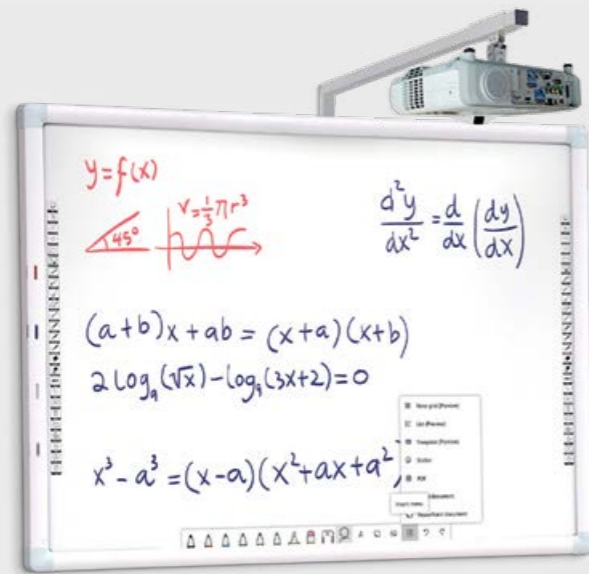 y=f(x)
45°
V=⅓πr³
d²y/dx² = d/dx (dy/dx)
(a+b)x+ab = (x+a)(x+b)
2log₉(√x)−log₉(3x+2)=0
x³−a³=(x−a)(x²+ax+a²
PDF